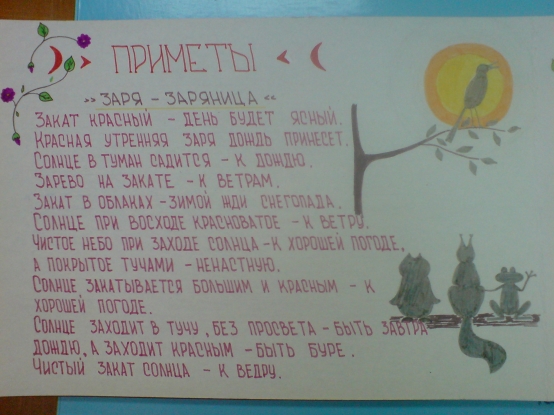 ПРИМЕТЫ
›› ЗАРЯ – ЗАРЯНИЦА ‹‹
ЗАКАТ КРАСНЫЙ – ДЕНЬ БУДЕТ ЯСНЫЙ.
КРАСНАЯ УТРЕННЯЯ ЗАРЯ ДОЖДЬ ПРИНЕСЕТ.
СОЛНЦЕ В ТУМАН САДИТСЯ – К ДОЖДЮ.
ЗАРЕВО НА ЗАКАТЕ – К ВЕТРАМ.
ЗАКАТ В ОБЛАКАХ – ЗИМОЙ ЖДИ СНЕГОПАДА.
СОЛНЦЕ ПРИ ВОСХОДЕ КРАСНОВАТОЕ – К ВЕТРУ.
ЧИСТОЕ НЕБО ПРИ ЗАХОДЕ СОЛНЦА – К ХОРОШЕЙ ПОГОДЕ,
А ПОКРЫТОЕ ТУЧАМИ – НЕНАСТНУЮ.
СОЛНЦЕ ЗАКАТЫВАЕТСЯ БОЛЬШИМ И КРАСНЫМ – К
ХОРОШЕЙ ПОГОДЕ.
СОЛНЦЕ ЗАХОДИТ В ТУЧУ, БЕЗ ПРОСВЕТА – БЫТЬ ЗАВТРА
ДОЖДЮ, А ЗАХОДИТ КРАСНЫМ – БЫТЬ БУРЕ.
ЧИСТЫЙ ЗАКАТ СОЛНЦА – К ВЕДРУ.